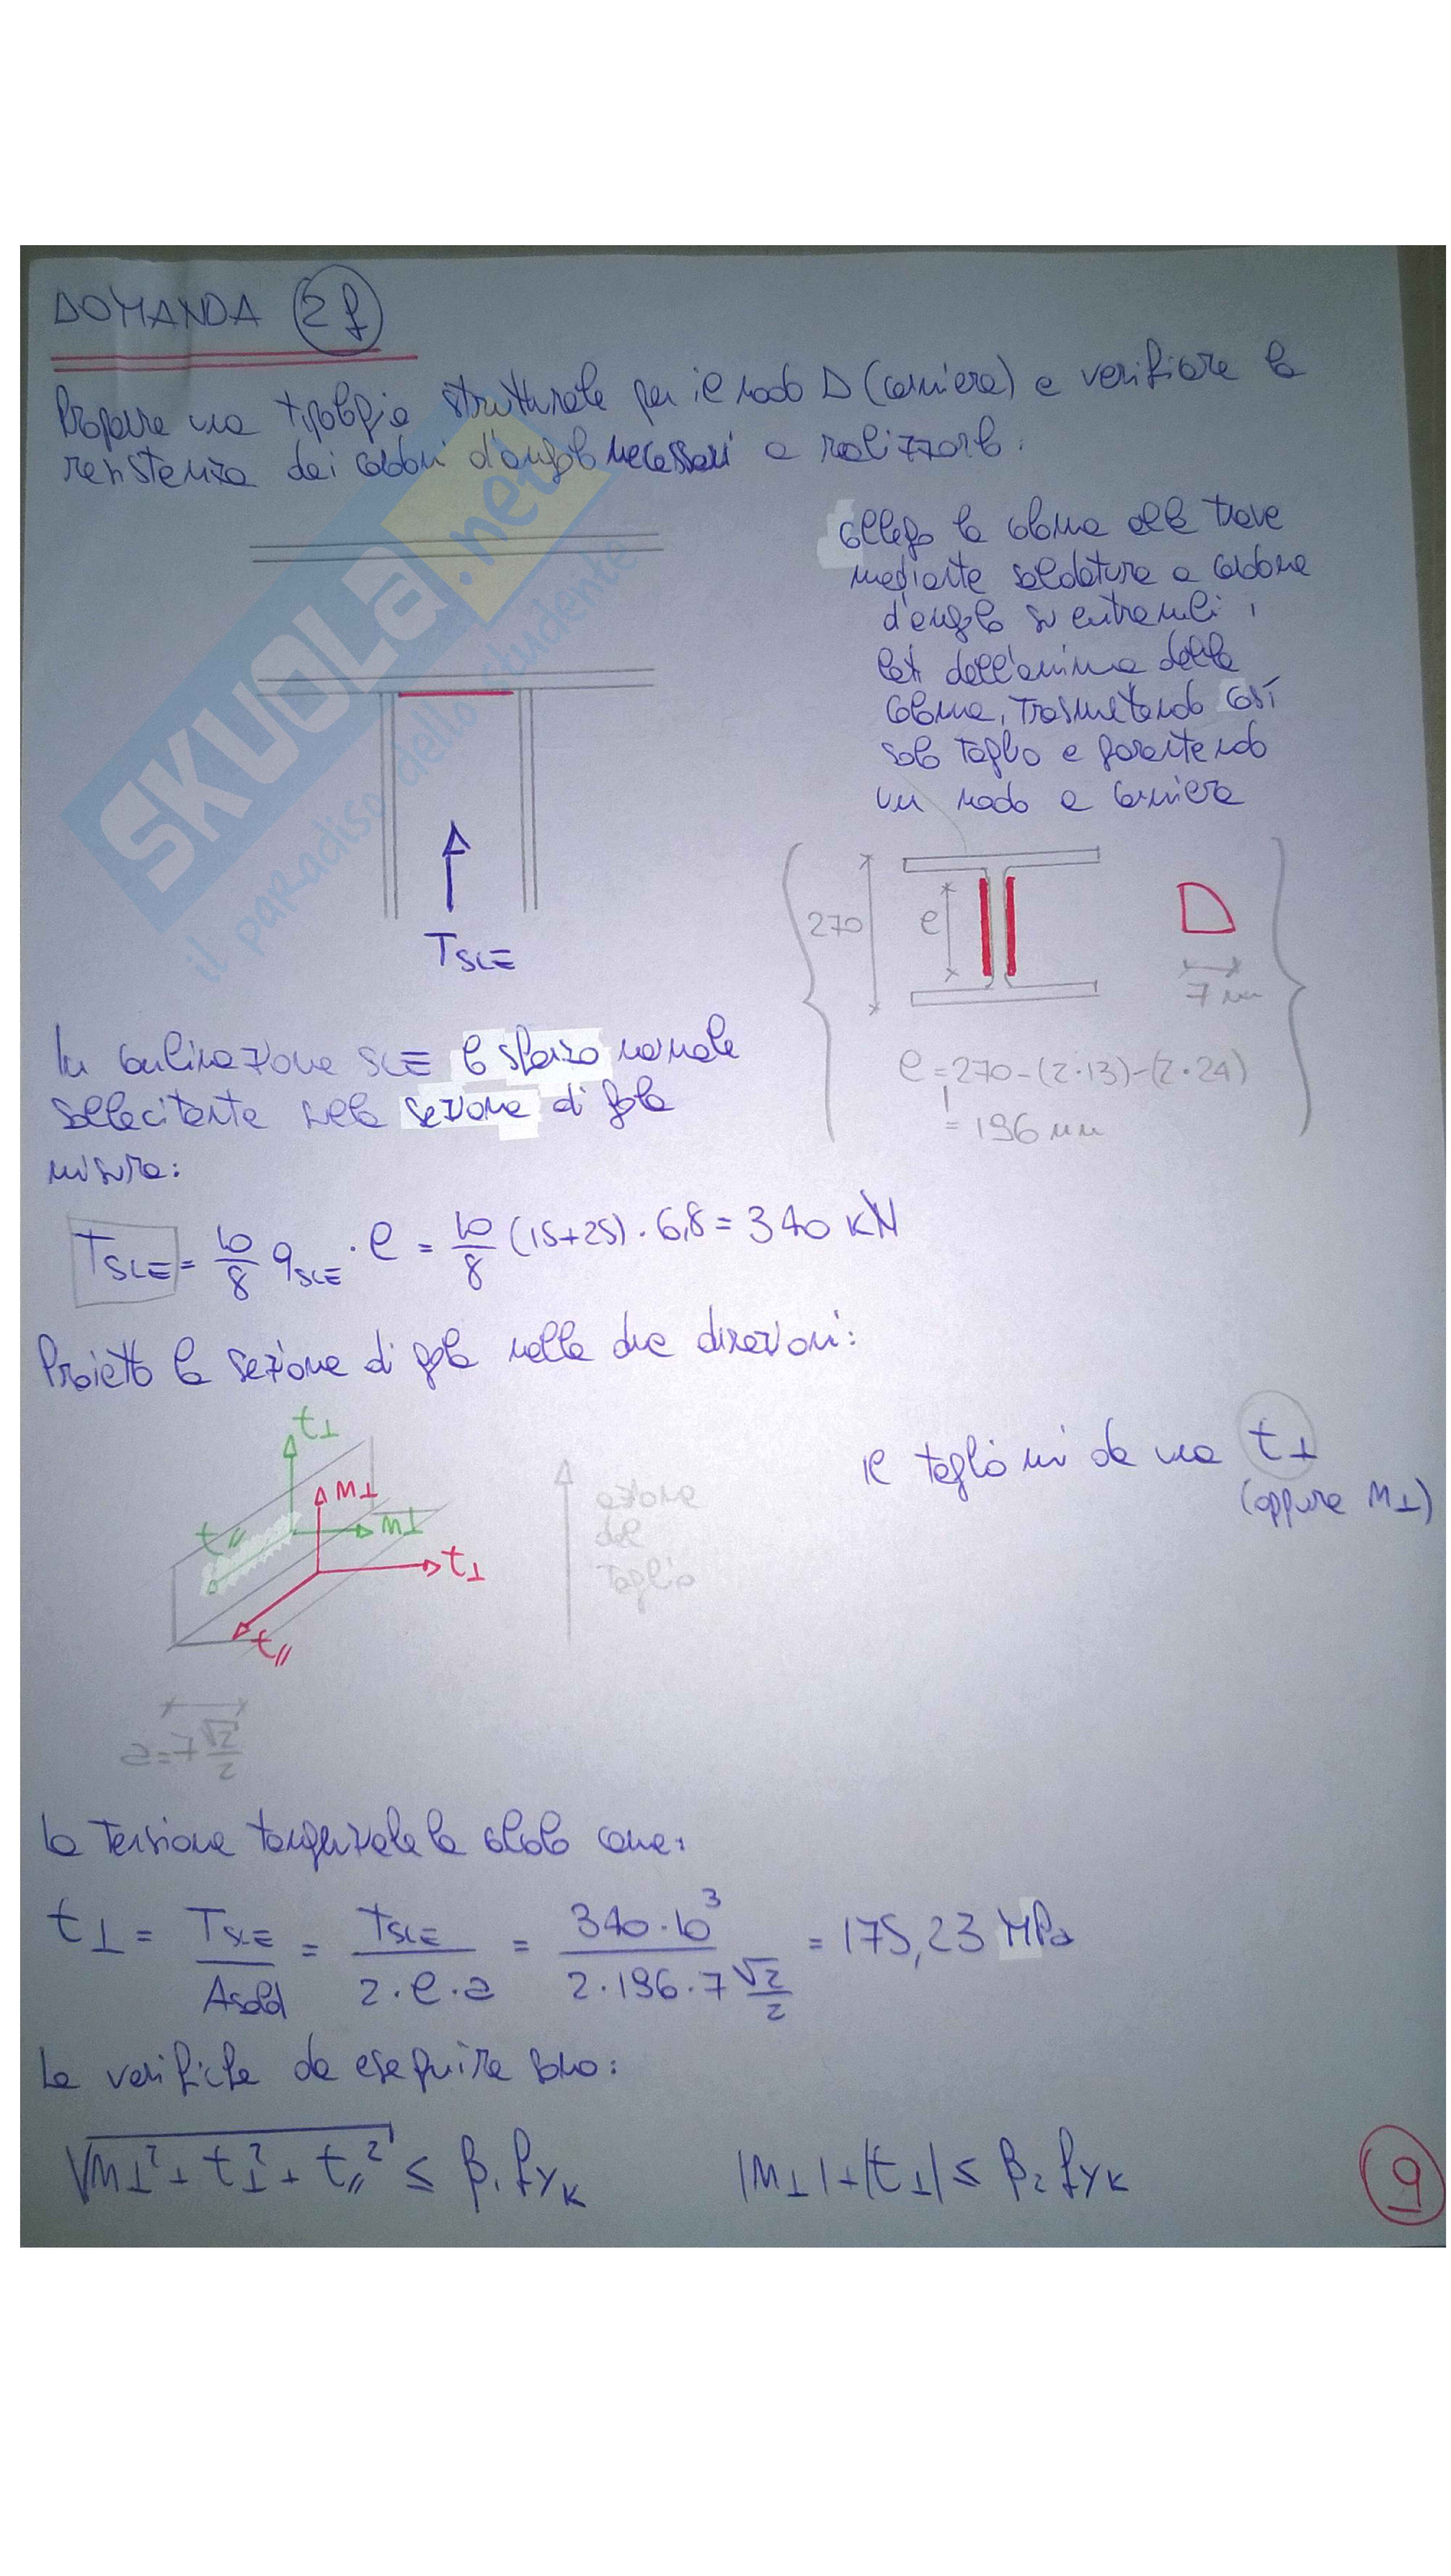 DOMANDA 2f
Proporre una tipologia strutturale per il nodo D (cerniera) e verificare la
resistenza dei cordoni d'angolo necessari a realizzarlo.
SKUOLA.net
il paradiso dello studente
collego la colonna alla trave
mediante saldatura a cordone
d'angolo su entrambi i
lati dell'anima della
colonna, trasmettendo così
solo taglio e garantendo
un nodo a cerniera
TSLE
270
e
7 mm
e = 270 - (2·13) - (2·24)
= 196 mm
In combinazione SLE lo sforzo normale
sollecitante nella sezione di gola
misura:
TSLE = 10/8 qSLE · e = 10/8 (15+25) · 6,8 = 340 kN
Proietto la sezione di gola nelle due direzioni:
t⊥
n⊥
t//
n⊥
t⊥
t//
azione
del
taglio
il taglio mi da una t⊥
(oppure n⊥)
a = 7 √2/2
la tensione tangenziale la calcolo come:
t⊥ = TSLE/Asald = TSLE/(2·e·a) = 340·10³/(2·196·7 √2/2) = 175,23 MPa
Le verifiche da eseguire sono:
√(n⊥² + t⊥² + t//²) ≤ β₁ fyk |n⊥| + |t⊥| ≤ β₂ fyk
9